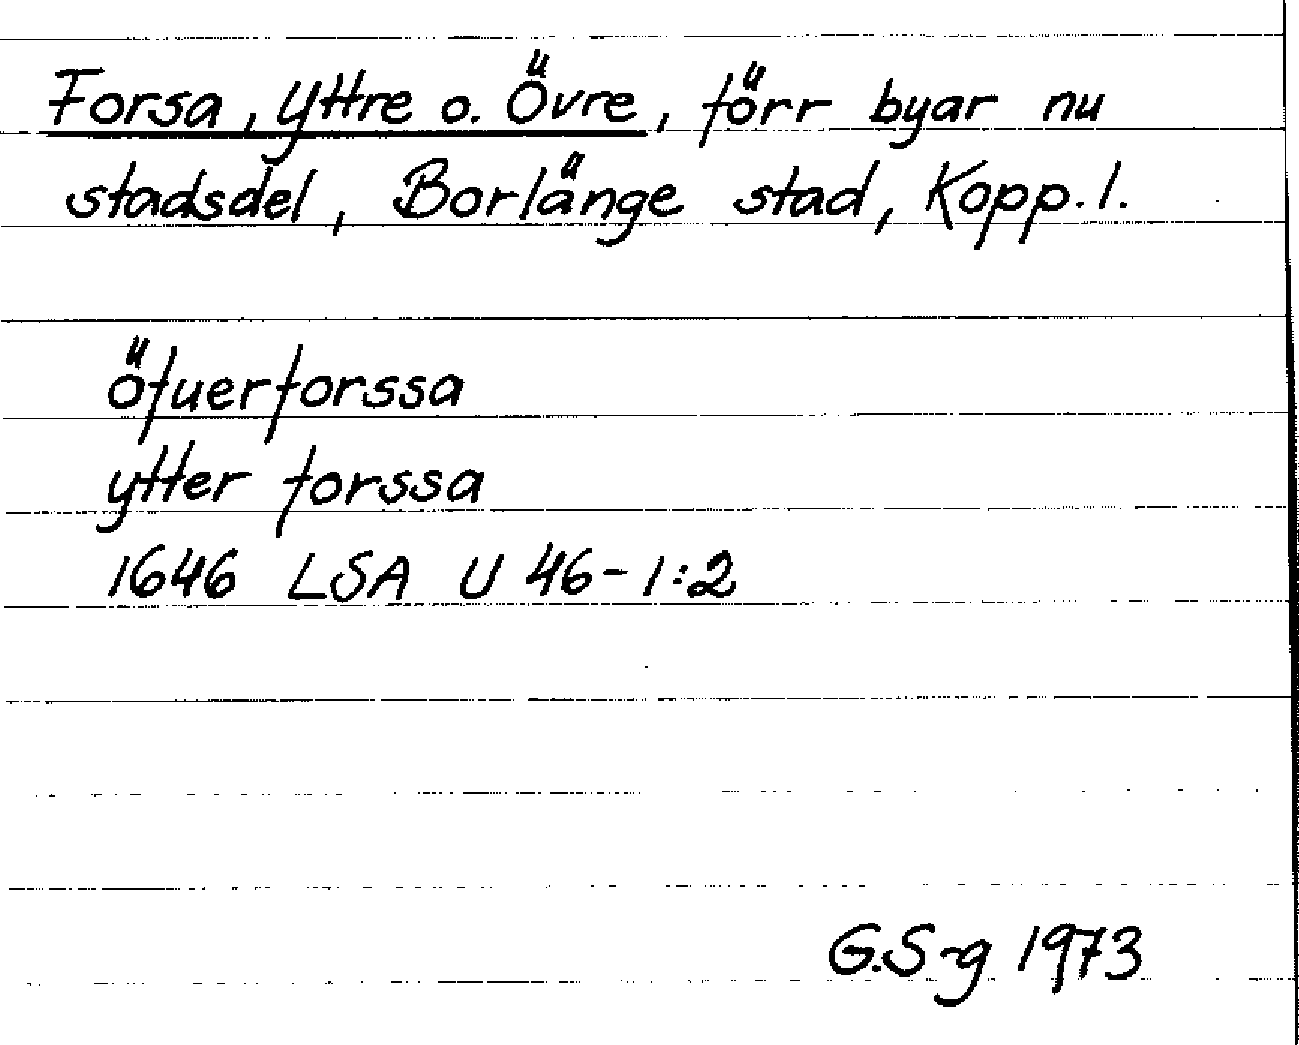 Forsa, Yttre o. Övre, förr byar nu
stadsdel, Borlänge stad, Kopp.l.
öfuerforssa
ytter forssa
1646 LSA U 46-1:2
G.S-g 1973